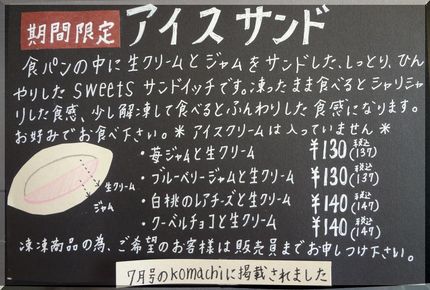 期間限定 アイスサンド
食パンの中に生クリームとジャムをサンドした、しっとり、ひん
やりしたsweetsサンドイッチです。凍ったまま食べるとシャリシャ
リした食感、少し解凍して食べるとふんわりした食感になります。
お好みでお食べ下さい。＊アイスクリームは入っていません＊
・苺ジャムと生クリーム ¥130 税込(137)
・ブルーベリージャムと生クリーム ¥130 税込(137)
・白桃のレアチーズと生クリーム ¥140 税込(147)
・クーベルチョコと生クリーム ¥140 税込(147)
生クリーム
ジャム
冷凍商品の為、ご希望のお客様は販売員までお申しつけ下さい。
7月号のkomachiに掲載されました